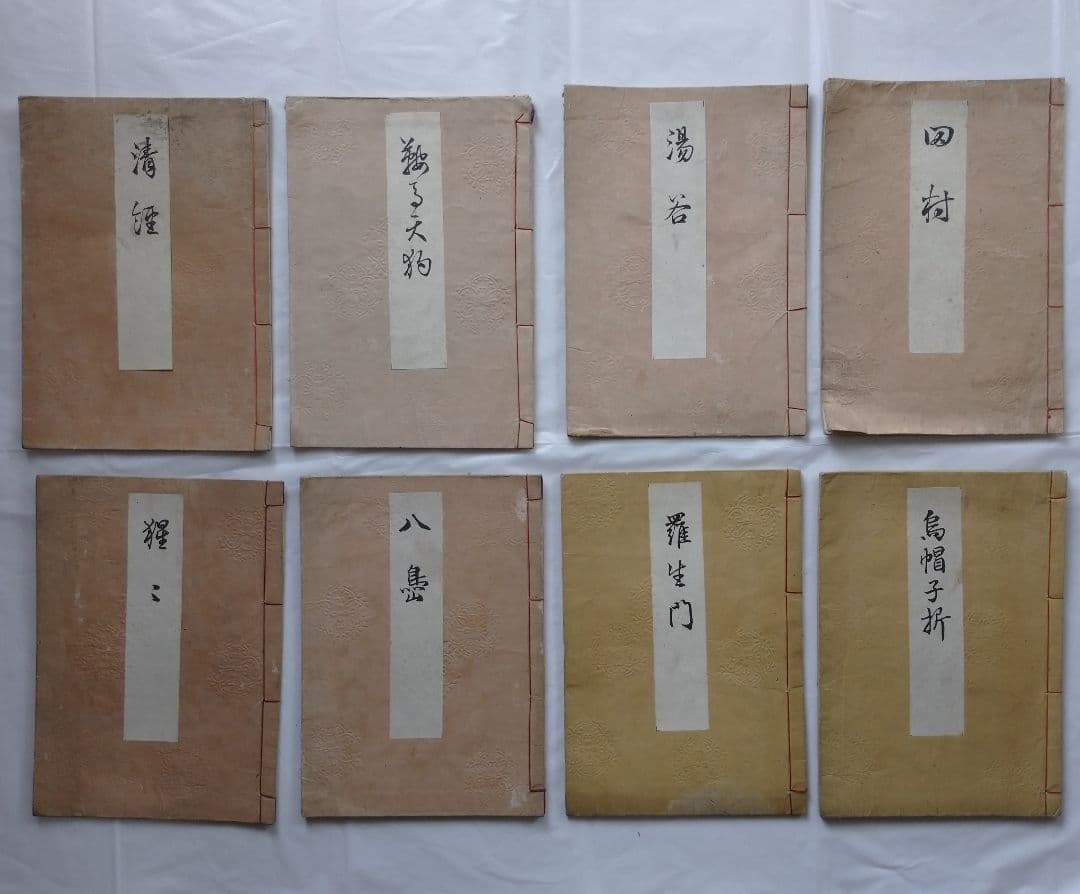 清経
鞍馬天狗
湯谷
田村
猩〻
八島
羅生門
烏帽子折